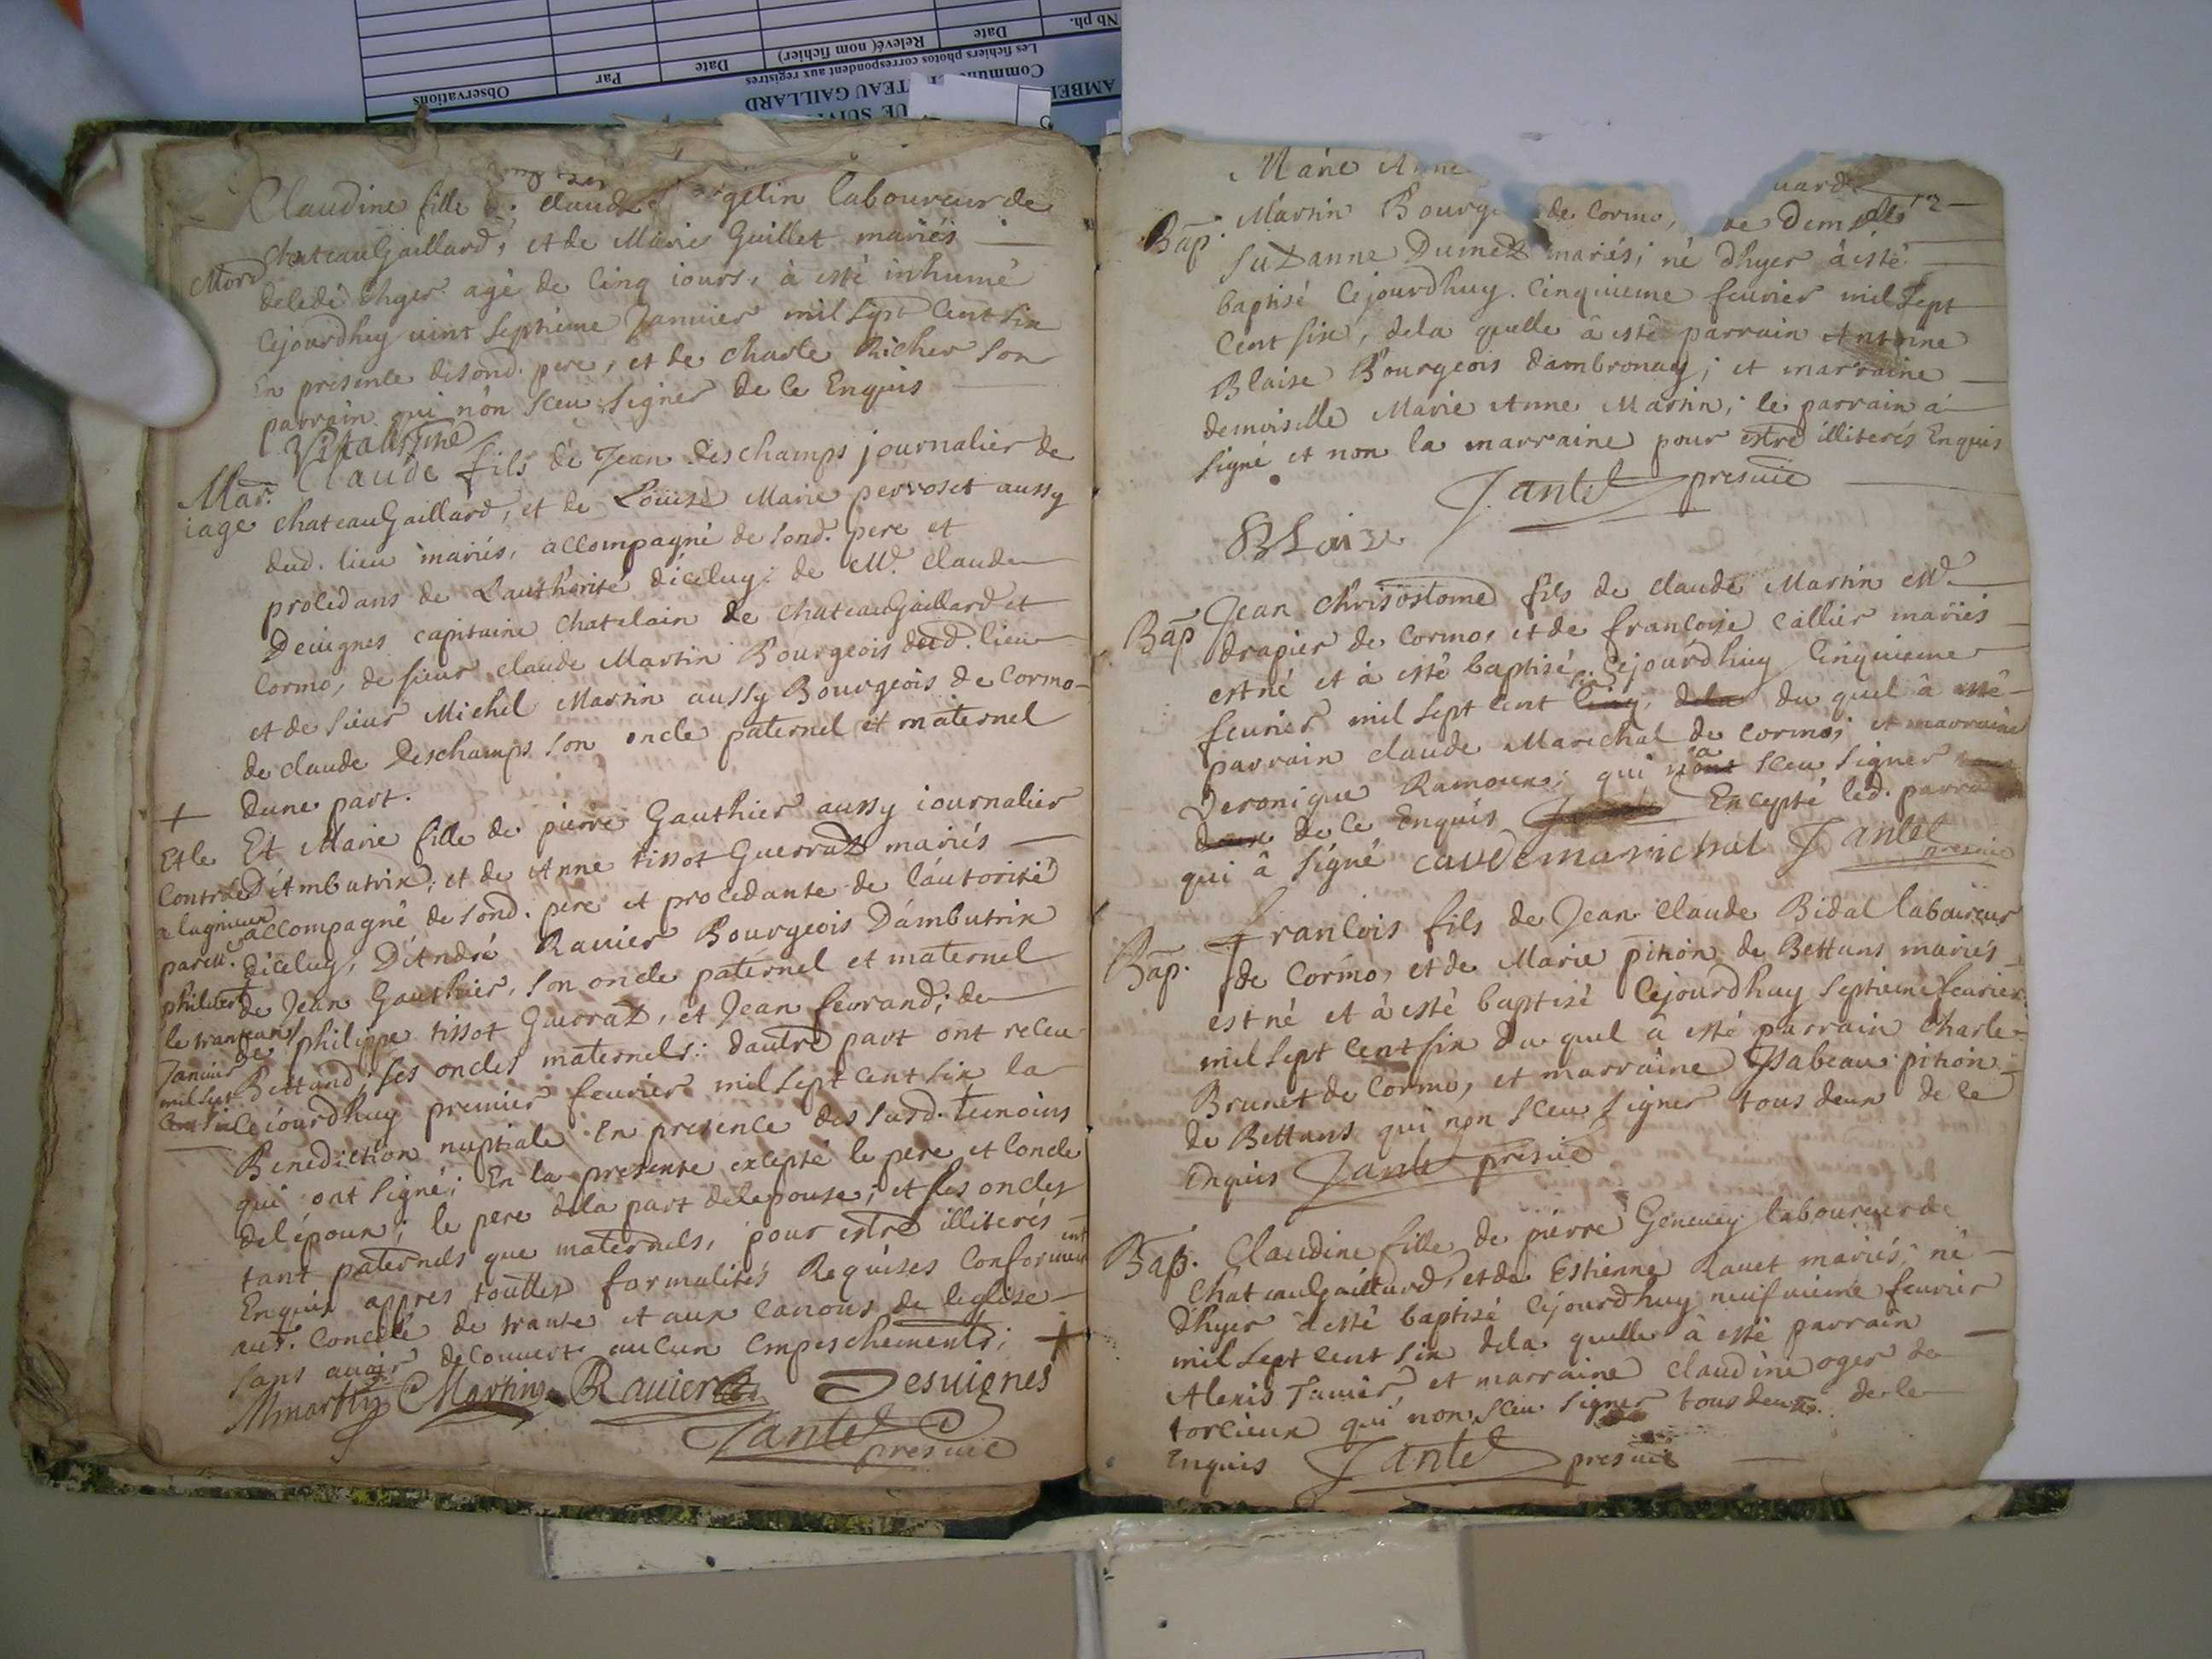 Observations
Par
Date
Relevé (nom fichier)
Date
Nb ph.
Les fichiers photos correspondent aux registres
TEAU GAILLARD
Claudine fille claude gelin laboureur de
chateauGaillard, et de Marie Guillet mariés
Mord
deledé dhyer agé de cinq iours, à esté inhumé
cejourdhuy vint septieme Janvier mil sept cent six
En presence desond. pere, et de charle Richer son
parrain qui nón sceu signer de ce Enquis
Mar. iage
Claude fils de Jean Deschamps journalier de
chateauGaillard, et de Loüise Marie perroset aussy
dud. lieu mariés, accompagné de sond. pere et
procedans de Lauthorité diceluy; de Mr. claude
Deuignes capitaine chatelain de chateauGaillard et
Cormo, de sieur claude Martin Bourgeois dud. lieu
et de sieur Michel Martin aussy Bourgeois de Cormo
de claude Deschamps son oncle paternel et maternel
dune part.
Et Marie fille de pierre Gauthier aussy iournalier
DAmbutrix; et de Anne tissot Guerraz mariés
accompagné de sond. pere et procedante de láutorité
diceluy, DAndré Rauier Bourgeois Dámbutrix
de Jean Gauthier, son oncle paternel et maternel
de philippe tissot Guerraz, et Jean feurand; de
Bettand, ses oncles maternels: dautre part ont receu
cejourdhuy premier feurier mil sept cent six la
Benediction nuptiale En presence des susd. temoins
qui ont signé; En la presente excepté le pere et loncle
del époux; le pere dela part delepouse; et ses oncles
tant paternels que maternels, pour estre illiterés
Enquis appres touttes formalités Requises Conformement
aux. Concile de trante et aux canons de leglise
sans auoir decouuert aucun Empeschements; +
+
Et le
Controlle
a lagnieu
par Mr.
philibert
le trante
Januier
mil sept
Cent six
Mmartin CMartin Rauier Desuignes
Jantet
presuic
Marie Anne
Bap.
Martin Bourge de Cormo,
Suzanne Dumez mariés; né dhyer à esté
baptisé Cejourdhuy. Cinquieme feurier mil sept
Cent six, dela quelle à esté parrain Antoine
Blaise Bourgeois dambronay; et marraine
demoiselle Marie Anne Martin; le parrain à
signé et non la marraine pour estre illiterés Enquis
Jantet presuic
BLaize
Bap
Jean Chrisostome fils de claude Martin Md.
drapier de Cormo, et de francoise Callier mariés
est né et à esté baptisé Cejourdhuy Cinquieme
feurier mil sept cent six cinq, dela du quel à esté
parrain claude Marechal de Cormo; et marraine
Veronique Ramoux; qui nont a sceu signer
deux de ce Enquis Excepté led. parrain
qui à signé cauде marichal Jantet
presuic
Bap.
Francois fils de Jean Claude Bidal laboureur
de Cormo, et de Marie pition de Bettans mariés
est né et à esté baptisé Cejourdhuy septieme feurier
mil sept cent six du quel à esté parrain charle
Brunet de Cormo, et marraine Isabeau pition
de Bettans qui non sceu signer tous deux de ce
Enquis Jantet presuic
Bap.
Claudine fille de pierre Geneuey laboureur de
ChateauGaillard, et de Estienne Rauet mariés; né
dhyer à esté baptisé Cejourdhuy neufuieme feurier
mil sept cent six dela quelle à esté parrain
Alexis Tauier, et marraine claudine oger de
torcieux qui non sceu signer tous deux de ce
Enquis Jantet presuic